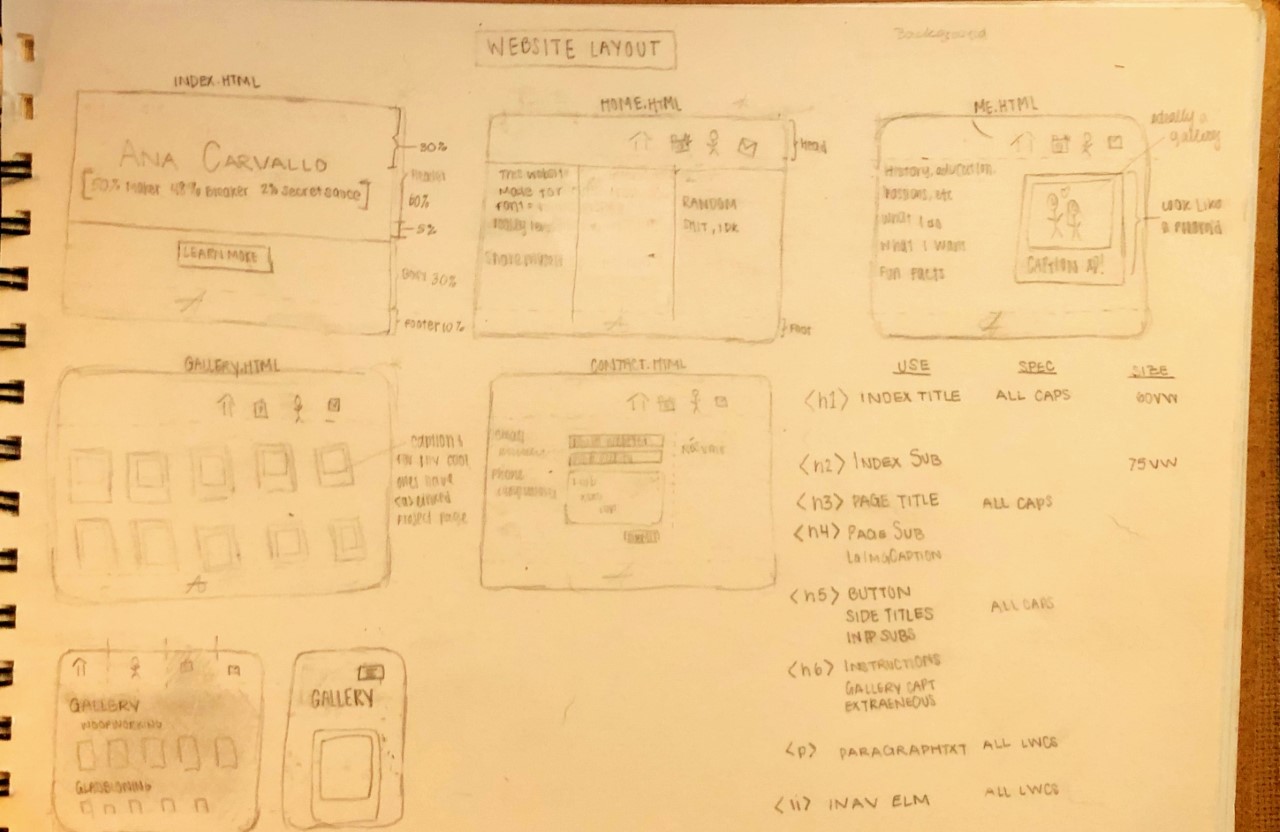 WEBSITE LAYOUT
Background
INDEX.HTML
ANA CARVALLO
[50% Maker 48% Breaker 2% secret sauce]
LEARN MORE
30%
60%
5%
BODY 30%
FOOTER 10%
HOME.HTML
This website
Made for
RANDOM
SHIT, IDK
Head
Foot
ME.HTML
ideally a
gallery
History, education,
passions, etc
What I do
What I want
FUN FACTS
CAPTION XP!
LOOK LIKE
GALLERY.HTML
captions
cool
ones have
project page
CONTACT.HTML
PHONE
USE SPEC SIZE
<h1> INDEX TITLE ALL CAPS 60VW
<h2> INDEX SUB 75VW
<h3> PAGE TITLE ALL CAPS
<h4> PAGE SUB
CAPTION
<h5> BUTTON ALL CAPS
SIDE TITLES
SUBS
<h6> INSTRUCTIONS
GALLERY CAPT
EXTRAENEOUS
<p> PARAGRAPHTXT ALL LWCS
<li> NAV ELM ALL LWCS
GALLERY
WOODWORKING
GALLERY